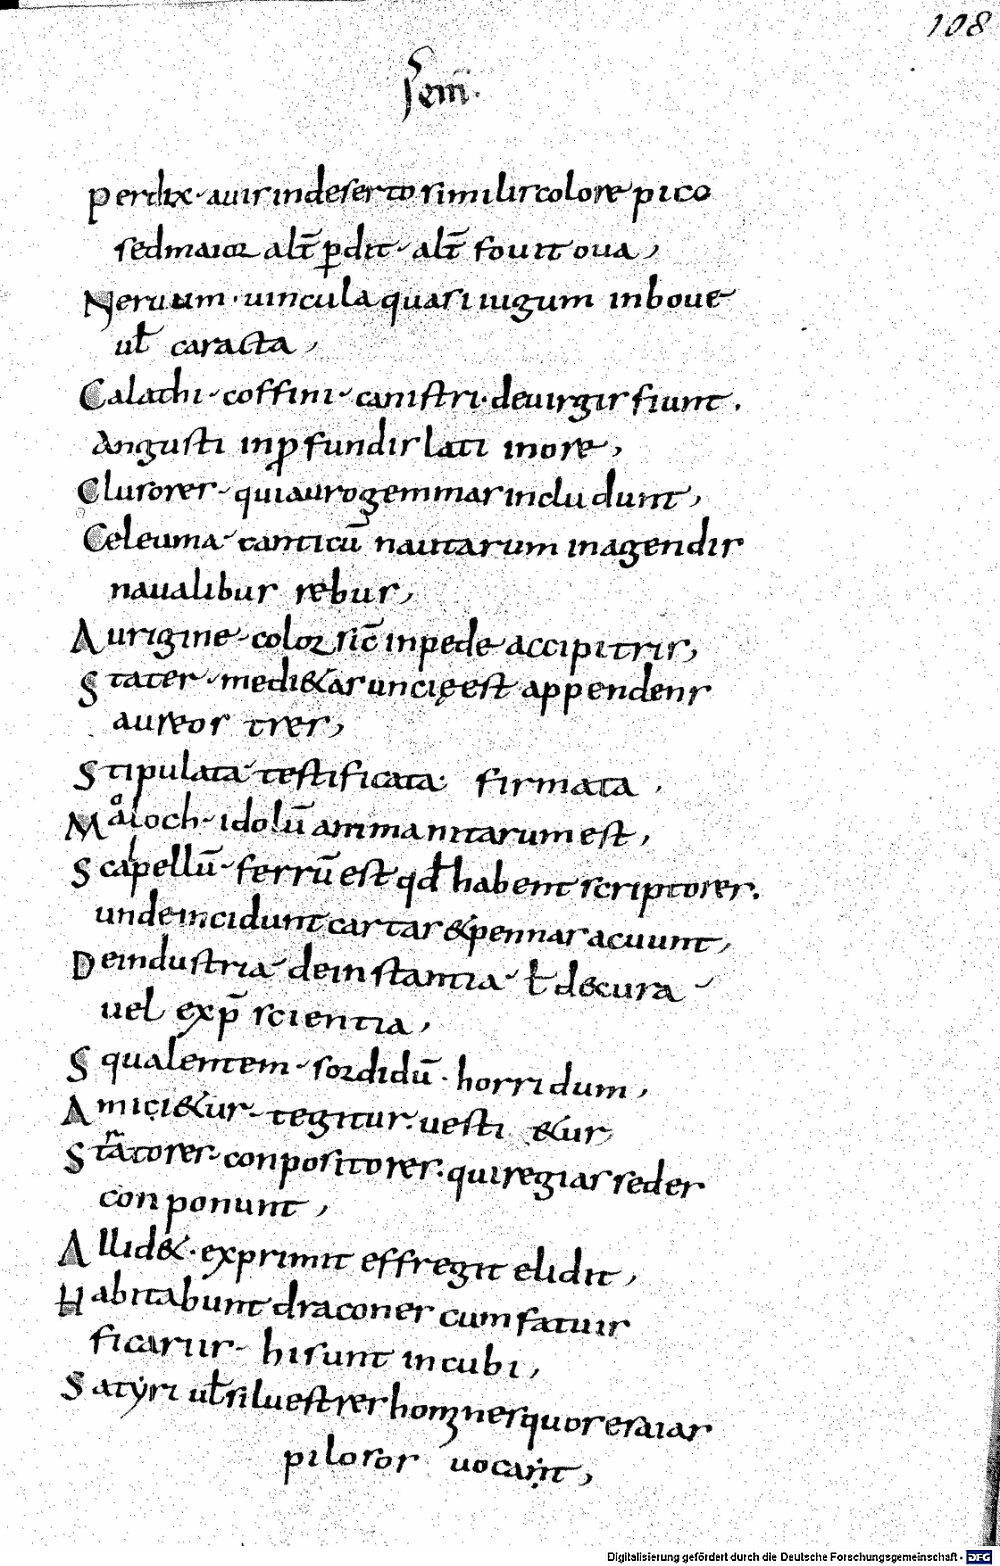 108
Sem̄.
Perdix. auis in deserto similis colore pico
sed maior alt̄ p̱dit. alt̄ fouit oua,
Neruum. uincula quasi iugum in boue
ul̄ caracta,
Calathi. coffini. canistri. de uirgis fiunt.
Angusti in ꝓfundis lati in ore,
Clusores. qui auro gemmas includunt,
Celeuma. canticū nautarum in agendis
naualibus rebus,
Aurigine. color sic̄ in pede accipitris,
Stater. medi&as uncię est appendens
aureos tres,
Stipulata. testificata. firmata.
Maloch. idolū ammanitarum est,
Scalpellū. ferrū est qd̄ habent scriptores.
unde incidunt cartas & pennas acuunt,
De industria. de instantia. ł de cura
uel exp̄scientia,
Squalentem. sordidū. horridum,
Amici&ur. tegitur. uesti&ur,
Stratores. conpositores. qui regias sedes
conponunt,
Allid&. exprimit effregit elidit,
Habitabunt dracones cum fatuis
ficariis. hi sunt incubi,
Satyri ul̄ siluestres homines quos esaias
pilosos uocant,
Digitalisierung gefördert durch die Deutsche Forschungsgemeinschaft - DFG